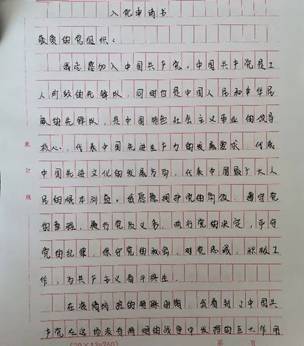 入党申请书
敬爱的党组织：
我志愿加入中国共产党，中国共产党是工
人阶级的先锋队，同时也是中国人民和中华民
族的先锋队，是中国特色社会主义事业的领导
核心，代表中国先进生产力的发展要求，代表
中国先进文化的发展方向，代表中国最广大人
民的根本利益。我志愿拥护党的纲领，遵守党
的章程，履行党员义务，执行党的决定，严守
党的纪律，保守党的秘密，对党忠诚，积极工
作，为共产主义奋斗终生。
在疫情
我看到了中国共
产党
的战争中发挥的巨大作用
装订线